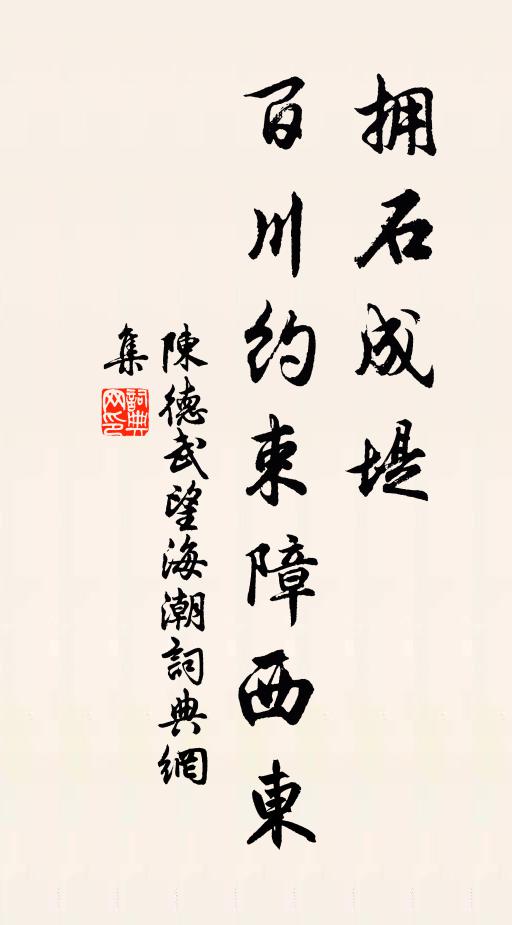 拥石成堤
百川约束障西東
陳德武望海潮詞典網
集
詞典
网印